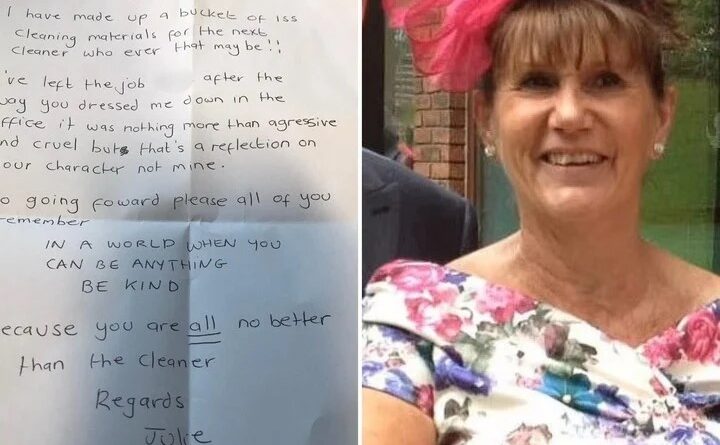 I have made up a bucket of iss
Cleaning materials for the next
Cleaner who ever that may be!!
've left the job after the
way you dressed me down in the
ffice it was nothing more than agressive
nd cruel but that's a reflection on
our character not mine.
o going foward please all of you
remember
IN A WORLD WHEN YOU
CAN BE ANYTHING
BE KIND
ecause you are all no better
than the cleaner
Regards
Julie